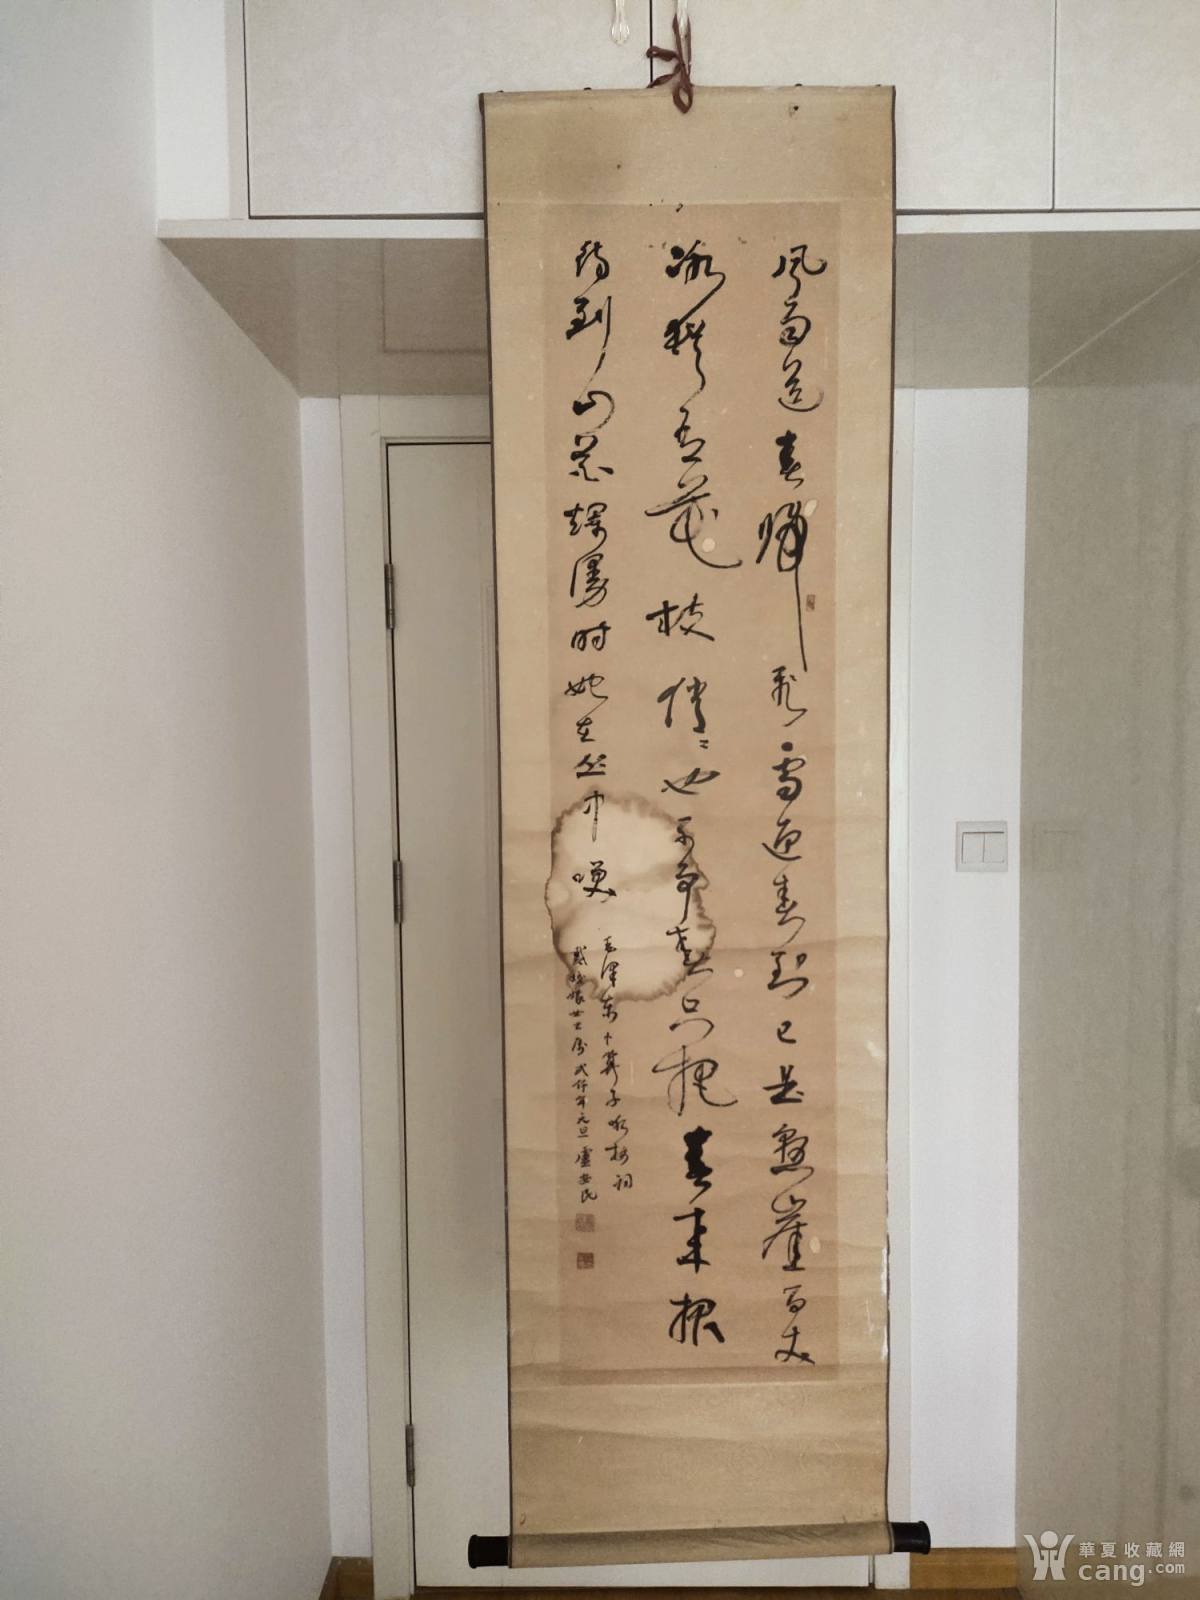 风雨送春归飞雪迎春到已是悬崖百丈
冰犹有花枝俏俏也不争春只把春来报
待到山花烂漫时她在丛中笑
毛泽东卜算子咏梅词
女士属 弍仟年元旦 卢安民
華夏收藏網
cang.com